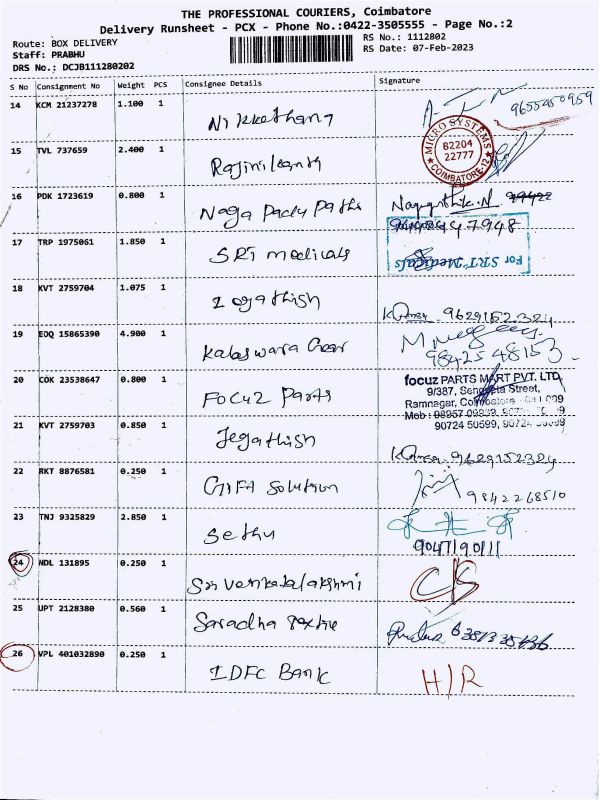 THE PROFESSIONAL COURIERS, Coimbatore
Delivery Runsheet - PCX - Phone No.:0422-3505555 - Page No.:2
Route: BOX DELIVERY
RS No.: 1112802
Staff: PRABHU
RS Date: 07-Feb-2023
DRS No.: DCJB111280202
S No Consignment No Weight PCS Consignee Details Signature
14 KCM 21237278 1.100 1 Nikkethang
9655950959
15 TVL 737659 2.400 1 Rajinikanth
MICRO SYSTEMS
82204
22777
COIMBATORE-12
16 PDK 1723619 0.800 1 Naga Padu Paths
47948
17 TRP 1975061 1.850 1 SRI medicals
For SRT Medicals
18 KVT 2759704 1.075 1 Jegathish
9629152324
19 EDQ 15865390 4.900 1 Kalaswara Gear
98425 48153
20 COK 23538647 0.800 1 FOCUZ Parts
focuz PARTS MART PVT. LTD,
9/387, Street,
Ramnagar, Coimbatore
Mob :
90724 50599,
21 KVT 2759703 0.850 1 Jegathish
9629152324
22 RKT 8876581 0.250 1 GIFA Solution
9842268510
23 TNJ 9325829 2.850 1 Sethu
9047190111
24 NDL 131895 0.250 1 Sri Venkatalakshmi
C/S
25 UPT 2128380 0.560 1 Saradha Textile
26 VPL 401032890 0.250 1 IDFC Bank
H/R